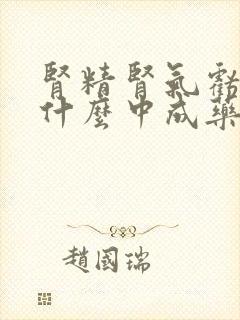 腎精腎氣虧
什麼中成藥
趙國瑞